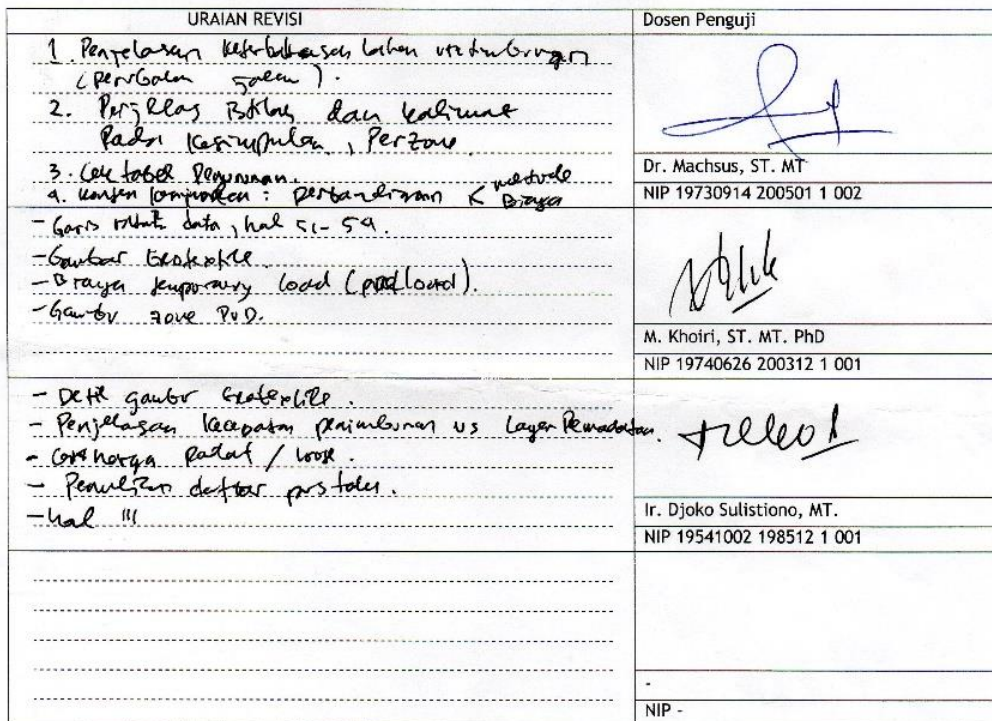 URAIAN REVISI
Dosen Penguji
1. Penjelasan keterbatasan lahan untuk
(perubahan
2. Perjelas istilah dan kalimat
Pada Kesimpulan, Perzone
3. Cek tabel Penurunan.
4. : perbandingan < metode
Biaya
Dr. Machsus, ST. MT
NIP 19730914 200501 1 002
- Garis data, hal 51-54.
- Gambar Geotextile
- Biaya temporary load (preload).
- Gambar zone PVD.
M. Khoiri, ST. MT. PhD
NIP 19740626 200312 1 001
- Detil gambar Geotextile.
- Penjelasan kecepatan penimbunan vs Layer Pemadatan.
- harga padat / loose.
- Penulisan daftar pustaka.
- hal III
Ir. Djoko Sulistiono, MT.
NIP 19541002 198512 1 001
-
NIP -